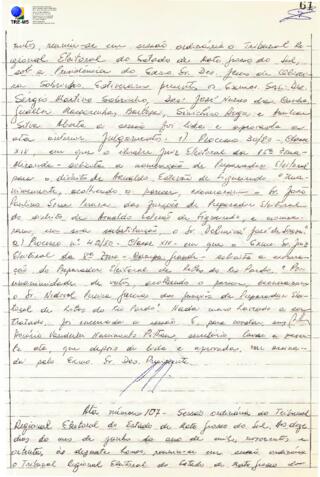 TRE-MS
61
nutos, reuniu-se em sessão ordinária o Tribunal Re-
gional Eleitoral do Estado de Mato Grosso do Sul,
sob a Presidência do Exmo. Sr. Des. Jesus de Oliveira
Sobrinho. Estiveram presentes os Exmos. Srs.:
Sérgio Martins Sobrinho, Des. José Nunes da Cunha,
Silva. Aberta a sessão foi lida e aprovada a
ata anterior. Julgamentos: 1) Processo 39/80 - Classe
XIX, em que o Eleitoral da 15ª Zona -
Miranda - solicita a nomeação de Preparador Eleitoral
para o distrito de Arnaldo Estevão de Figueiredo.
nimemente, acolhendo o parecer, exoneraram o Sr. João
Paulino das funções de Preparador Eleitoral
do distrito de Arnaldo Estevão de Figueiredo, e nomea-
ram, em sua substituição, o Sr.
2) Processo nº 42/80 - Classe XIX - em que o Exmo. Sr. Juiz
Eleitoral da 8ª Zona - Campo Grande - solicita a exone-
ração do Preparador Eleitoral de Ribas do Rio Pardo. Por
unanimidade de votos, acolhendo o parecer, exoneraram
o Sr. das funções de Preparador Elei-
toral de Ribas do Rio Pardo. Nada mais havendo a ser
tratado, foi encerrada a sessão. E, para constar, eu,
secretário, lavrei a presen-
te ata, que depois de lida e aprovada, vai assina-
da pelo Exmo. Sr. Des. Presidente.
Ata número 107 - Sessão ordinária do Tribunal
Regional Eleitoral do Estado de Mato Grosso do Sul. Aos
dias do mês de junho do ano de mil, novecentos e
oitenta, às dezessete horas, reuniu-se em sessão ordinária
o Tribunal Regional Eleitoral do Estado de Mato Grosso do